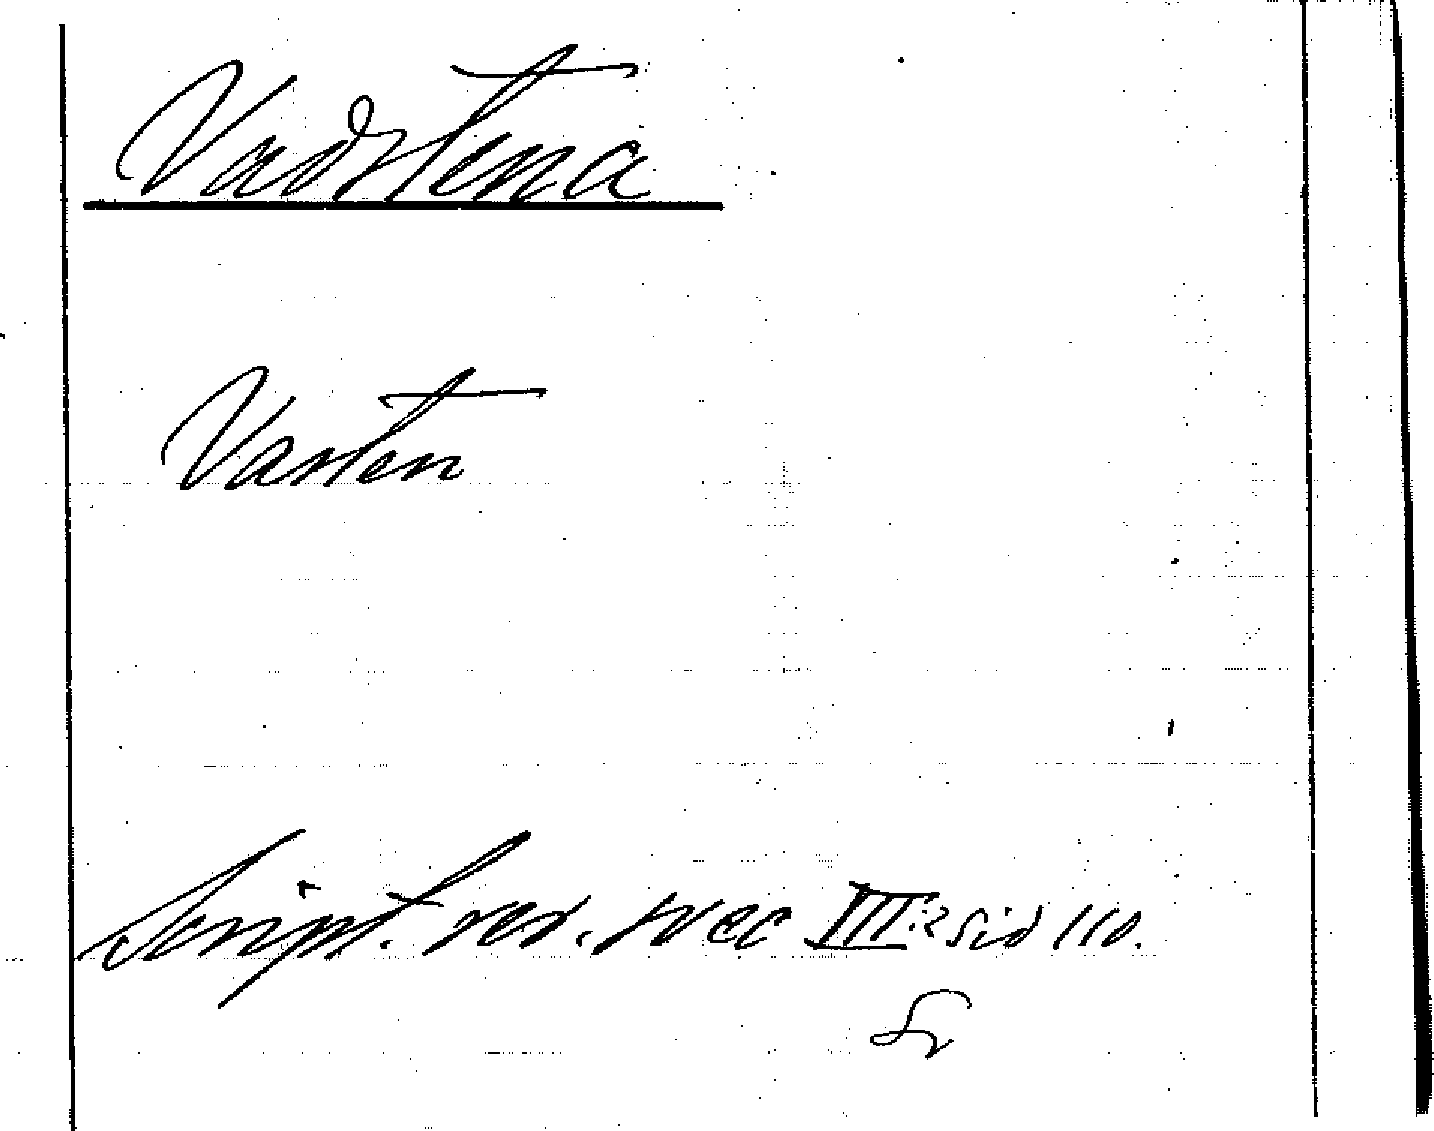 Vadstena
Vasten
Script. rer. svec III:2 sid 110.